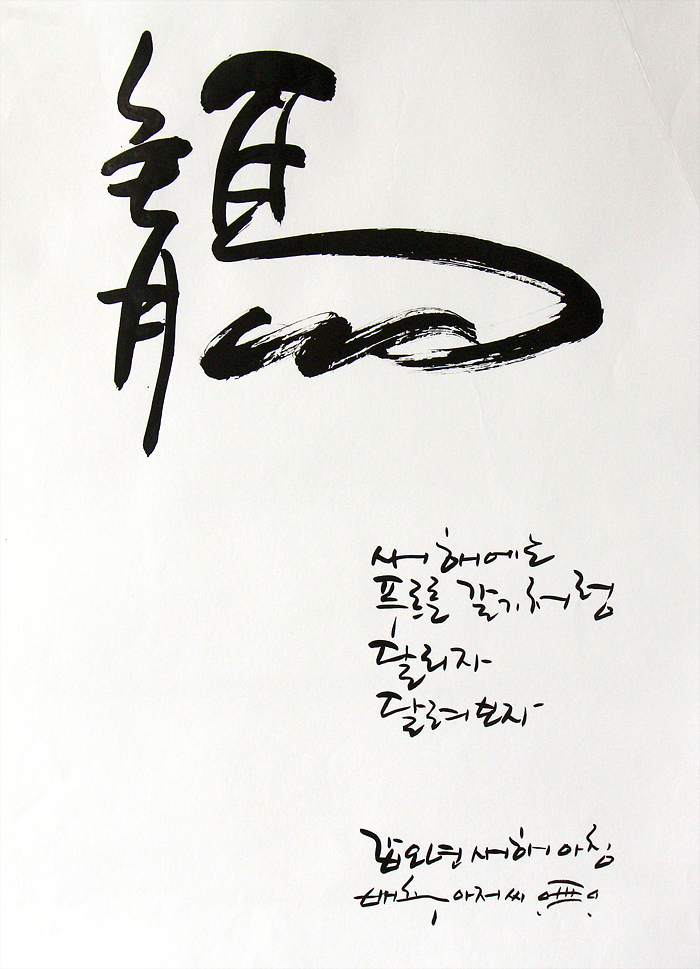 靑馬
새해에는
푸르른 갈기처럼
달리자
달려보자
갑오년 새해 아침
배추 아저씨